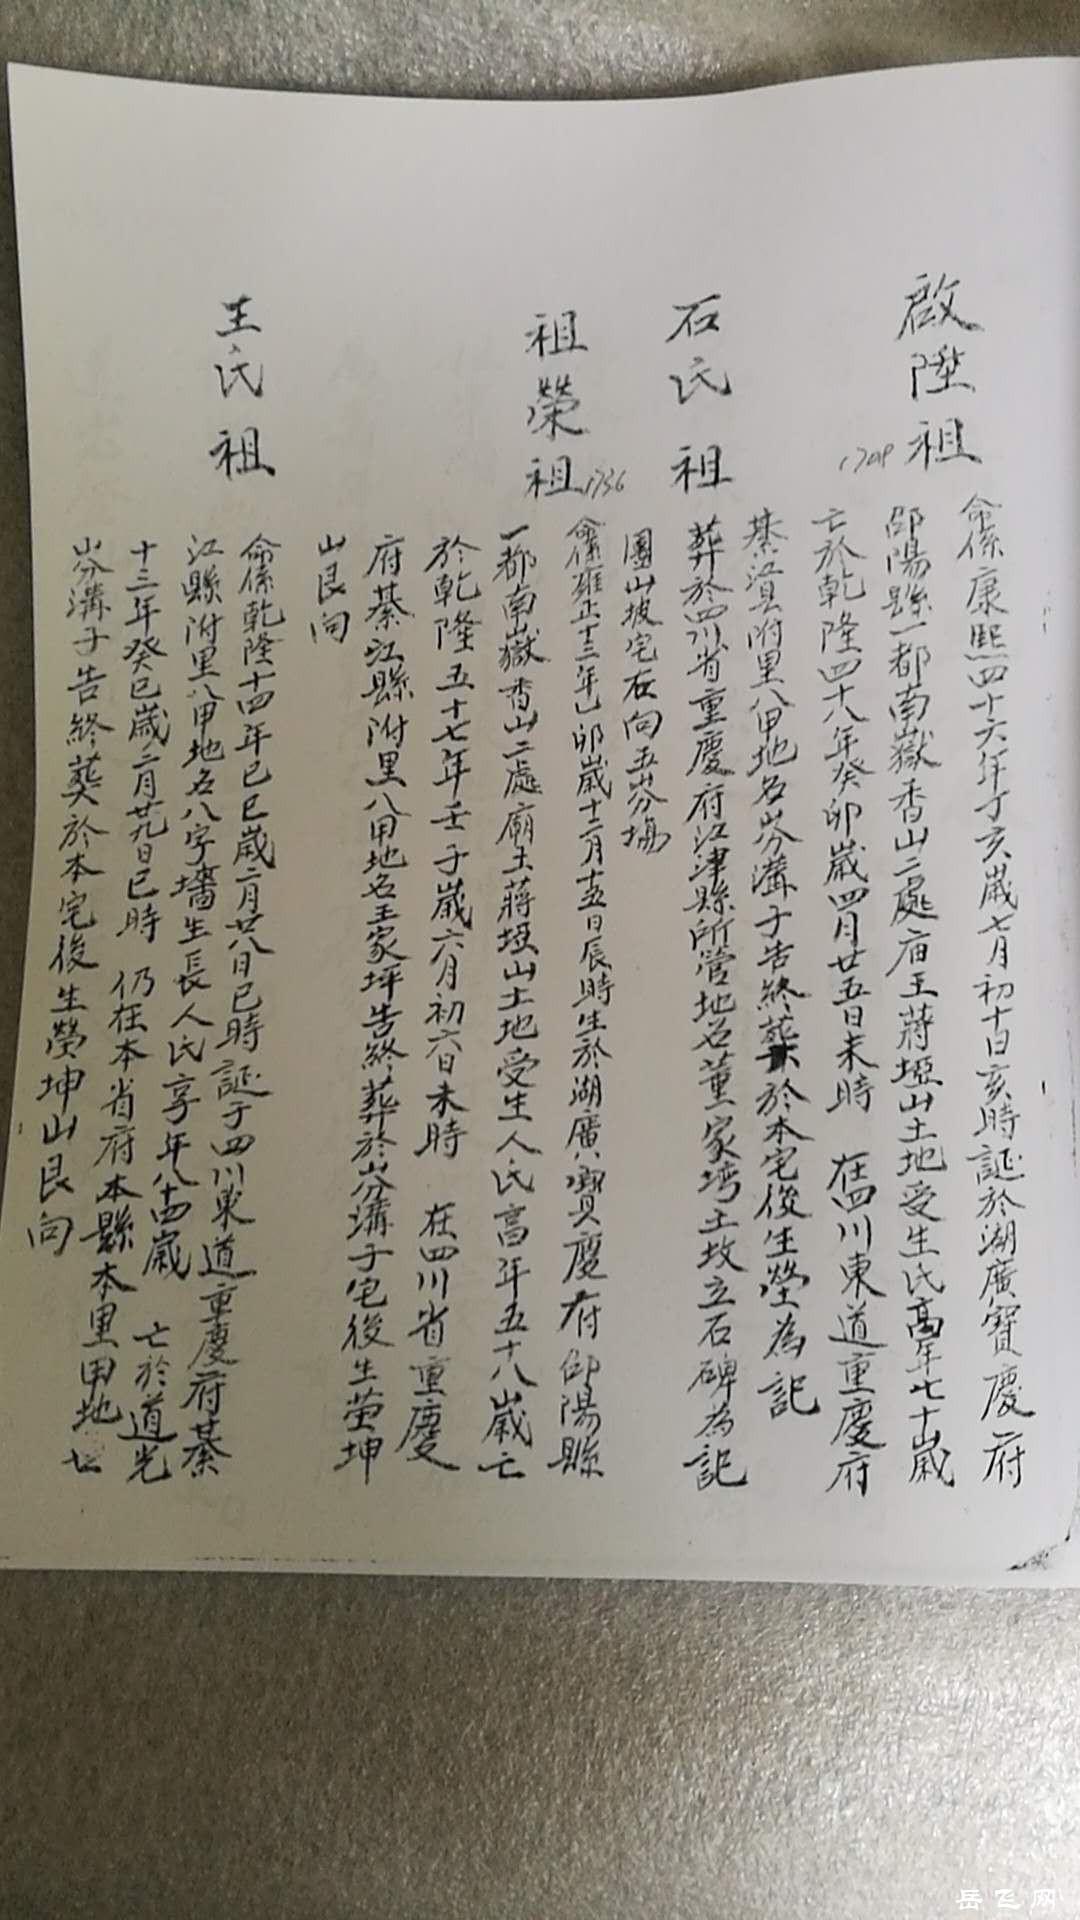 啟陞祖
1708
命係康熙四十六年丁亥歲七月初十日亥時誕於湖廣寶慶府
邵陽縣一都南嶽香山二處庙王蔣埡山土地受生氏高年七十歲
亡於乾隆四十八年癸卯歲四月廿五日未時 在四川東道重慶府
綦江县附里八甲地名岔溝子告終葬於本宅後生塋為記
石氏祖
葬於四川省重慶府江津縣所管地名董家湾土坟立石碑為記
團山坡宅右向五岔塲
祖榮祖
1736
命係雍正十三年乙卯歲十二月十五日辰時生於湖廣寶慶府邵陽縣
一都南嶽香山二處廟王蔣埡山土地受生人氏高年五十八歲亡
於乾隆五十七年壬子歲六月初六日未時 在四川省重慶
府綦江縣附里八甲地名王家坪告終葬於岔溝子宅後生茔坤
山艮向
王氏祖
命係乾隆十四年已巳歲二月廿八日巳時誕于四川東道重慶府綦
江縣附里八甲地名八字墻生長人氏享年八十四歲 亡於道光
十三年癸巳歲二月廿九日巳時 仍在本省府本縣本里甲地
岔溝子告終葬於本宅後生塋坤山艮向
岳飞网